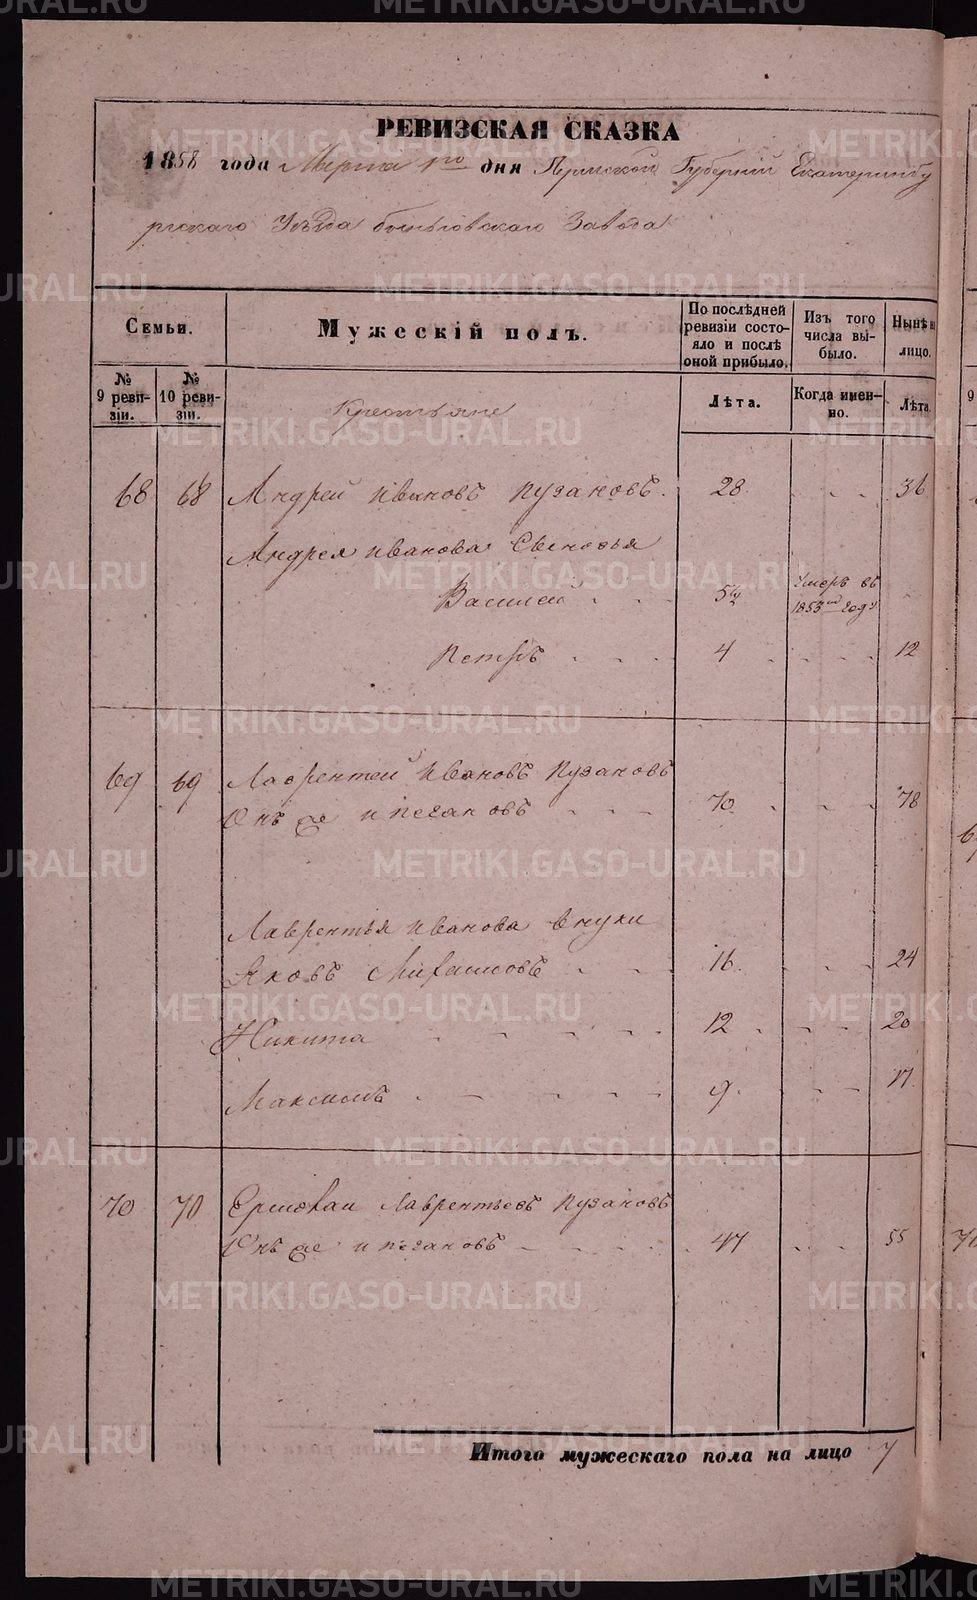 РЕВИЗСКАЯ СКАЗКА
1858 года Марта 1го дня Пермской Губернiи Екатеринбу
ргскаго Уѣзда Быньговскаго Завода
Семьи.
Мужескiй полъ.
По послѣдней ревизiи состояло и послѣ оной прибыло.
Изъ того числа выбыло.
Нынѣ н
лицо.
№ 9 ревизiи.
№ 10 ревизiи.
Лѣта.
Когда именно.
Лѣта.
Крестьяне
68 68 Андрей Ивановъ Пузановъ. 28. 36
Андрея Иванова Сыновья
Василей 5 Умеръ въ 1853мъ году
Петръ 4 12
69 69 Лаврентей Ивановъ Пузановъ
Онъ же и Пегановъ 70 78
Лаврентья Иванова внуки
Яковъ 16. 24
Никита 12 20
Максимъ 9 17.
70 70 Ермолай Лаврентьевъ Пузановъ
Онъ же и Пегановъ 47 55
Итого мужескаго пола на лицо 7
METRIKI.GASO-URAL.RU